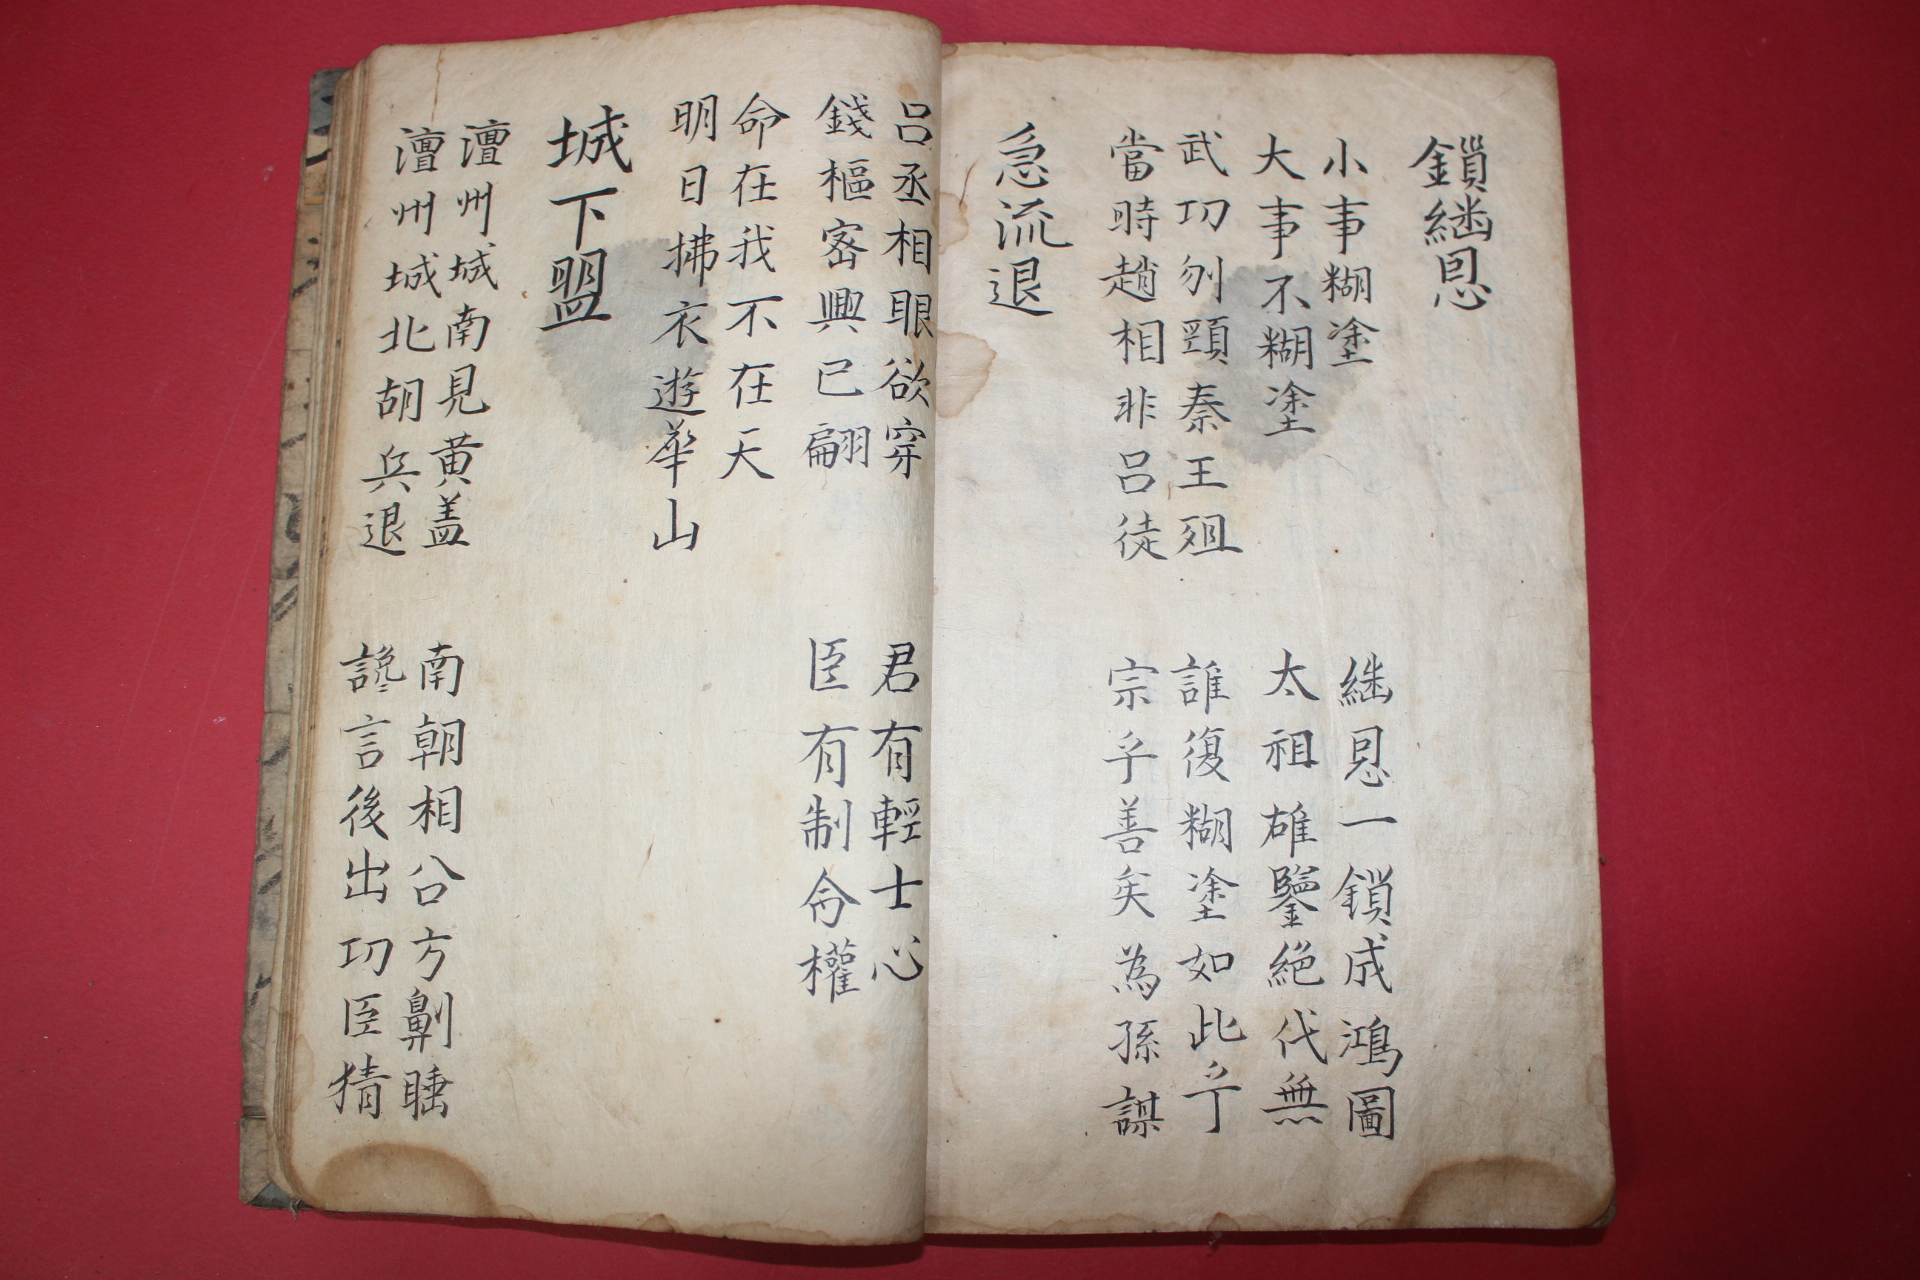 鎖繼恩
小事糊塗
大事不糊塗
繼恩一鎖成鴻圖
太祖雄鑒絕代無
武功刎頸秦王殂
當時趙相非呂徒
誰復糊塗如此乎
宗乎善矣為孫謀
急流退
呂丞相眼欲穿
錢樞密興已翩
君有輕士心
臣有制命權
命在我不在天
明日拂衣遊華山
城下盟
澶州城南見黃盖
澶州城北胡兵退
南朝相公方鼾睡
讒言後出功臣猜